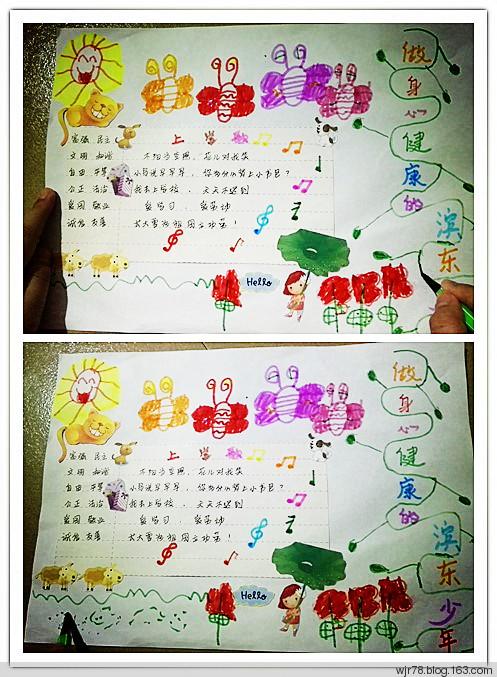 做身心健康的滨东
富强 民主 上学歌
文明 和谐 太阳当空照，花儿对我笑
自由 平等 小鸟说早早早，你为什么背上小书包？
公正 法治 我去上学校，天天不迟到
爱国 敬业 爱学习，爱劳动
诚信 友善 长大要为祖国立功劳！
Hello
做身心健康的滨东少年
富强 民主 上学歌
文明 和谐 太阳当空照，花儿对我笑
自由 平等 小鸟说早早早，你为什么背上小书包？
公正 法治 我去上学校，天天不迟到
爱国 敬业 爱学习，爱劳动
诚信 友善 长大要为祖国立功劳！
Hello
wjr78.blog.163.com